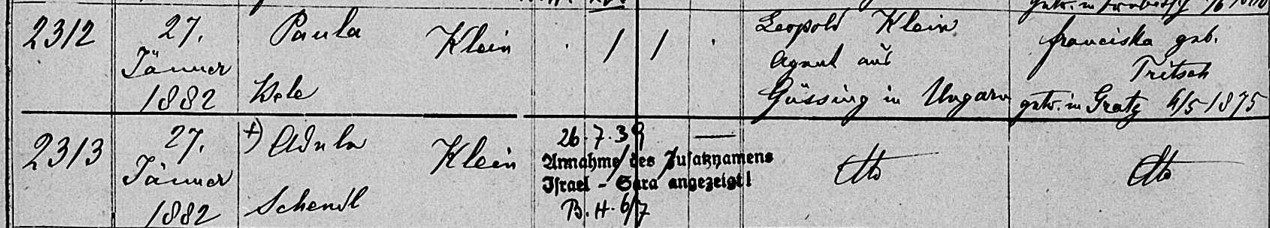 2312 27. Paula Klein · 1 1 · Leopold Klein franciska geb.
Jänner Agent aus Tritsch
1882 Güssing in Ungarn getr. in Gratz 4/5 1875
2313 27. +) Adula Klein 26.7.39 — dtto dtto
Jänner Annahme des Zusatznamens
Israel - Sara angezeigt!
1882 Schendl B.H. 6/7